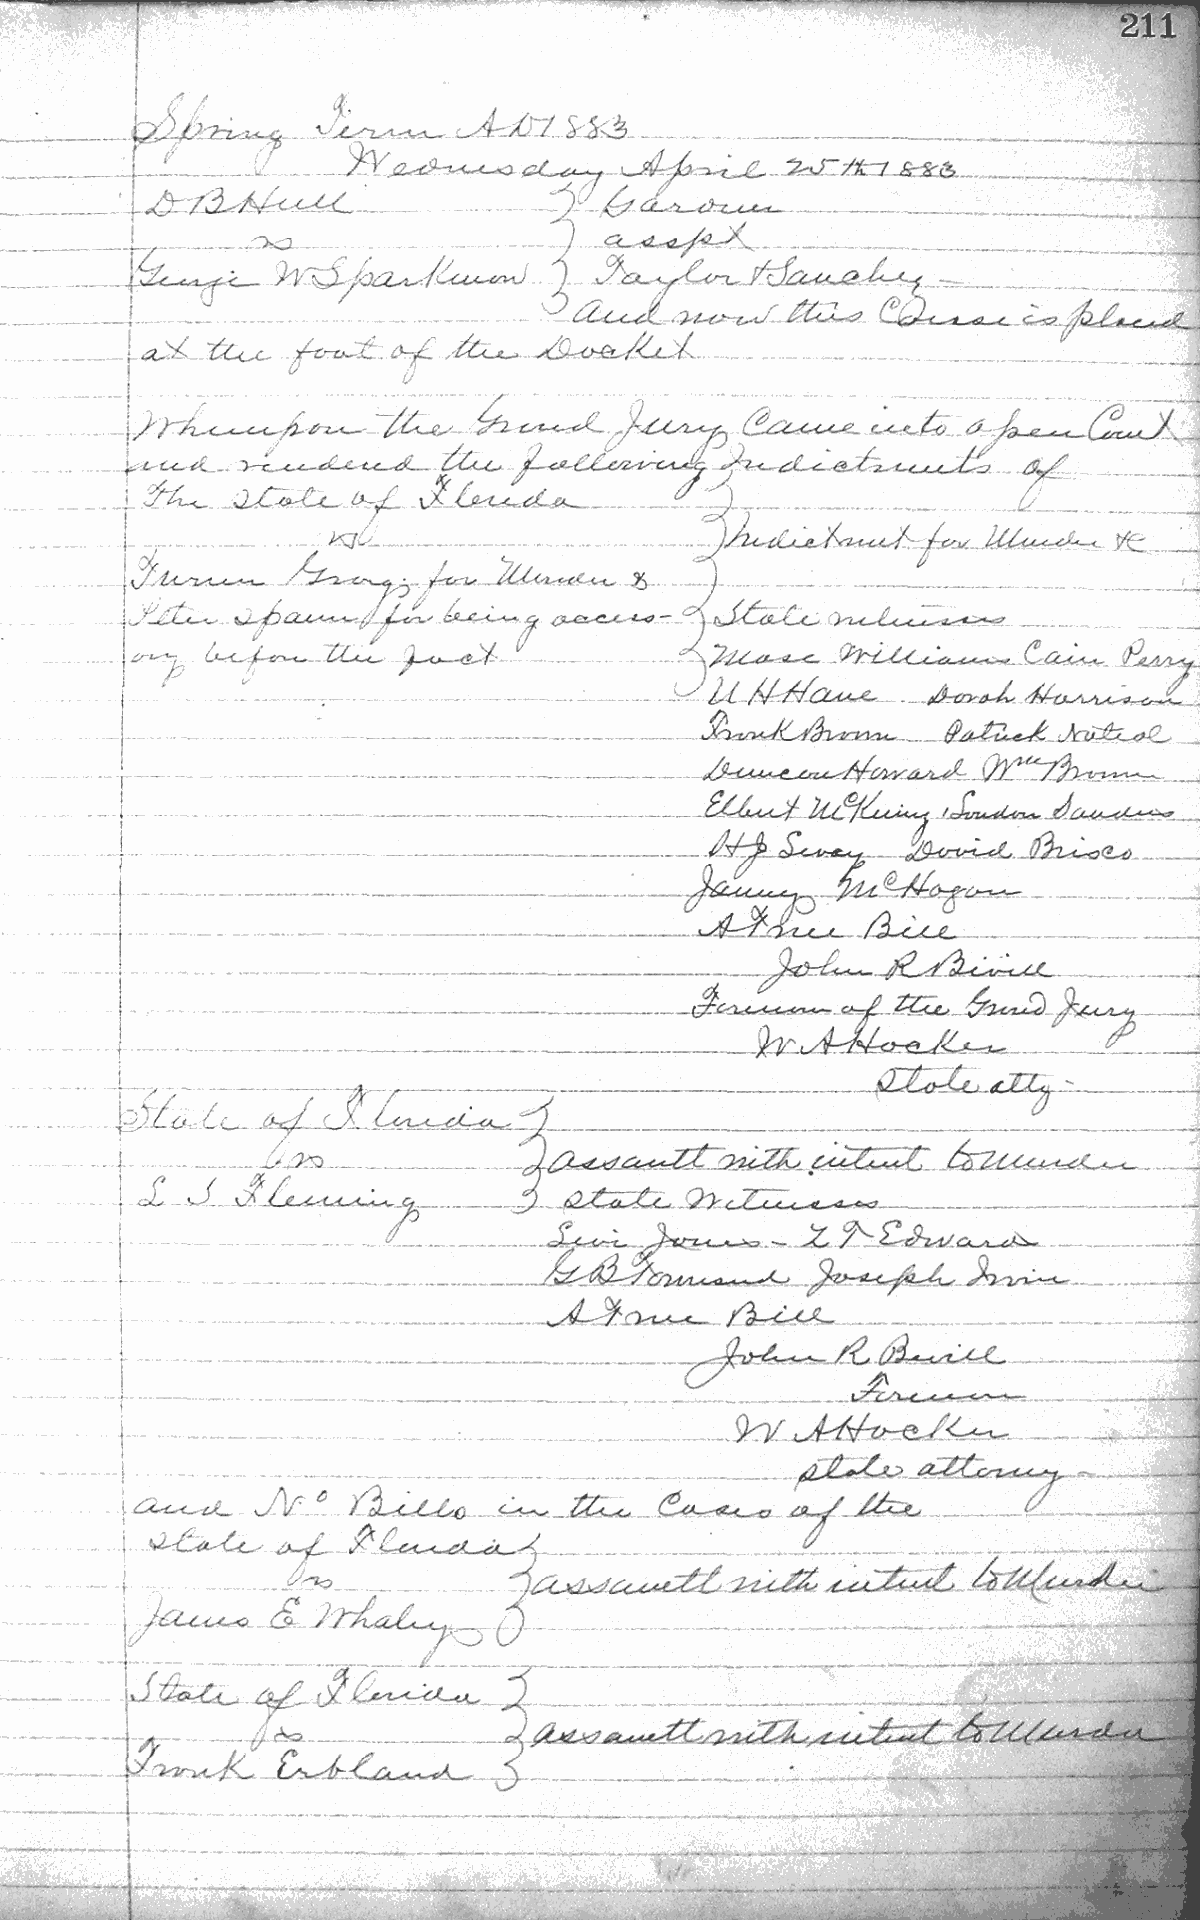 211
Spring Term AD 1883
Wednesday April 25th 1883
D B Hull } Garown
vs } asspt
George W Sparkman } Taylor & Sanchez -
And now this Cause is placed
at the foot of the Docket
Whereupon the Grand Jury Came into open Court
and rendered the following Indictments of
The State of Florida
vs } Indictment for Murder &c
George for Murder &
Peter Spann for being access-
ory before the fact
State witnesses
Mose Williams Cain Perry
U H Hane Dorah Harrison
Frank Brown Patrick
Duncan Howard Wm Brown
Elbert London Sanders
H J David Brisco
McHogan
A True Bill
John R Bivill
Foreman of the Grand Jury
W A Hocker
State atty -
State of Florida }
vs } assault with intent to Murder
L S Fleming } State Witnesses
Levi Jones - Z T Edwards
G B Townsend Joseph Irvin
A True Bill
John R Bevill
Foreman
W A Hocker
State attorney -
and No Bills in the Cases of the
State of Florida }
vs } assault with intent to Murder
James E Whaley }
State of Florida }
vs } assault with intent to Murder
Frank Erbland }